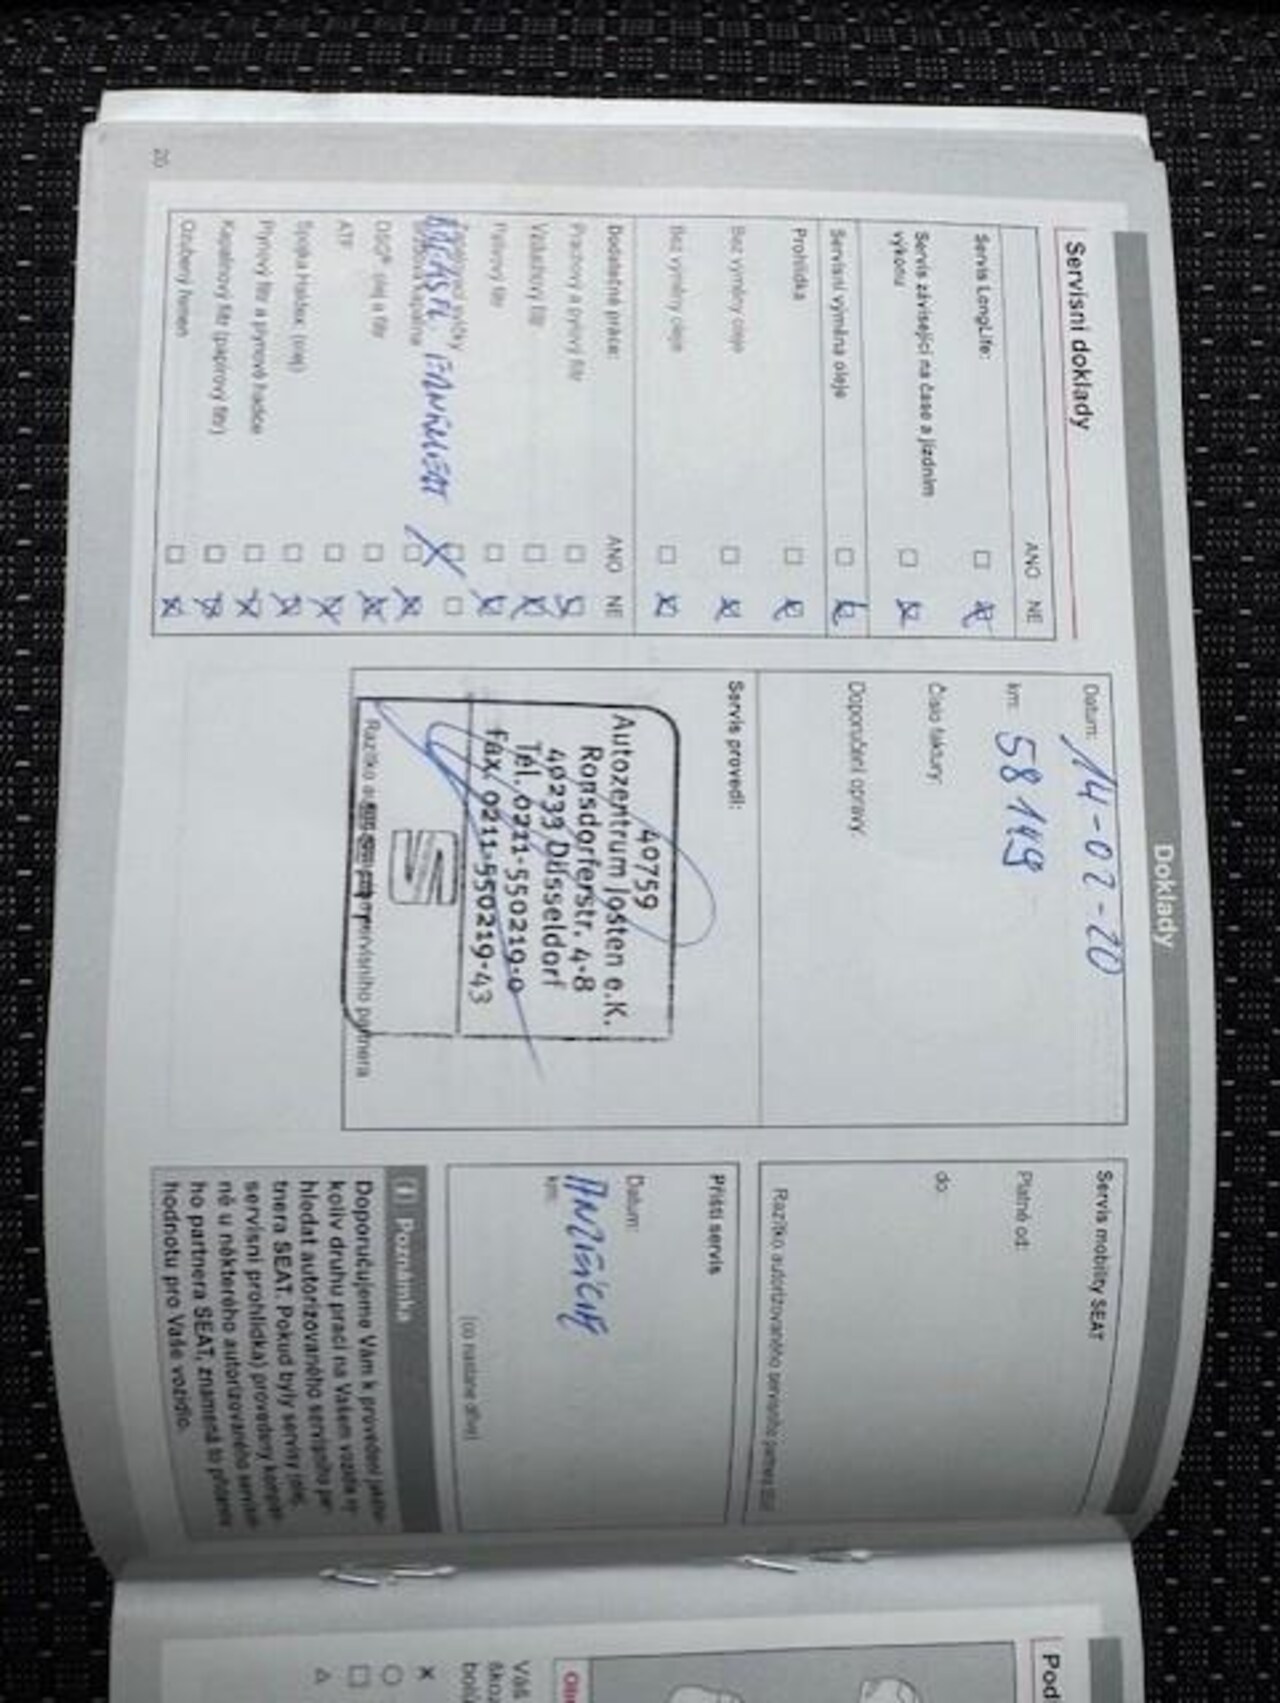 Doklady
Servisní doklady
ANO NE
Servis LongLife:
Servis závisející na čase a jízdním
výkonu
Servisní výměna oleje
Prohlídka
Bez výměny oleje
Bez výměny oleje
Dodatečné práce:
ANO NE
Prachový a pylový filtr
Vzduchový filtr
Palivový filtr
Zapalovací svíčky
ATF
Spojka Haldex (olej)
Plynový filtr a plynové hadice
Kapalinový filtr (papírový filtr)
Ozubený řemen
20
Datum: 14-02-20
km: 58149
Číslo faktury:
Doporučení opravy:
Servis provedl:
40759
Autozentrum Josten e.K.
Ronsdorferstr. 4-8
40233 Düsseldorf
Tel. 0211-550219-0
Fax. 0211-550219-43
Servis mobility SEAT
Platné od:
do:
Razítko autorizovaného servisního partnera SEAT
Příští servis
Datum:
km:
(co nastane dříve)
Poznámka
Doporučujeme Vám k provedení jakého-
koliv druhu prací na Vašem vozidle vy-
hledat autorizovaného servisního par-
tnera SEAT. Pokud byly servisy (olej,
servisní prohlídka) provedeny komplet-
ně u některého autorizovaného servisní-
ho partnera SEAT, znamená to přidanou
hodnotu pro Vaše vozidlo.